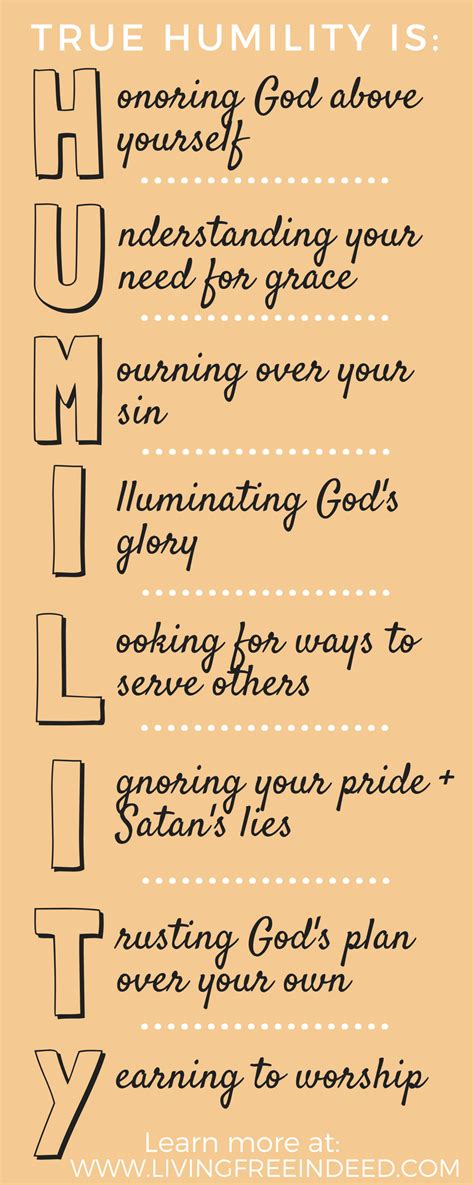 TRUE HUMILITY IS:
Honoring God above
yourself
Understanding your
need for grace
Mourning over your
sin
Illuminating God's
glory
Looking for ways to
serve others
Ignoring your pride +
Satan's lies
Trusting God's plan
over your own
Yearning to worship
Learn more at:
WWW.LIVINGFREEINDEED.COM